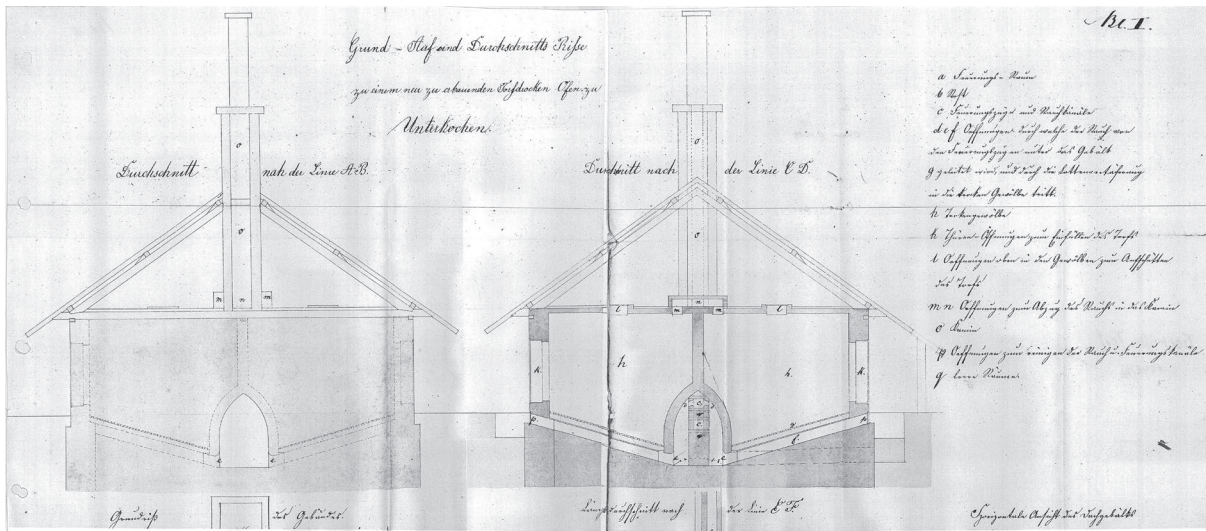 Nr. I.
Grund – Auf und Durchschnitts Risse
zu einem neu zu erbauenden Torfdrocken Ofen zu
Unterkochen.
Durchschnitt nach der Linie A B.
Durchschnitt nach der Linie C D.
a Feuerungs-Raum
b Rost
c Feuerungszüge und Rauchkanäle
d e f Oeffnungen durch welche der Rauch von
den Feuerungszügen unter das Gebälk
g geleitet wird, und durch die Lattenverkäferung
in die Gewölbe tritt.
h
k Thüren-Öffnungen zum Einfüllen des Torfs
l Oeffnungen oben in den Gewölben zum Aufschütten
des Torfs
m n Oeffnungen zum Abzug des Rauchs in das Kamin
o Kamin
p Oeffnungen zum reinigen der Rauch u. Feuerungskanäle
q leere Räume.
o
o
n n m
o
o
n
l m m l
k. h h. k.
p p
c
c
g
f
e e
e e
Grundriß des Gebäudes.
Längendurchschnitt nach der Linie E F.
Horizontale Ansicht des Dachgebälks